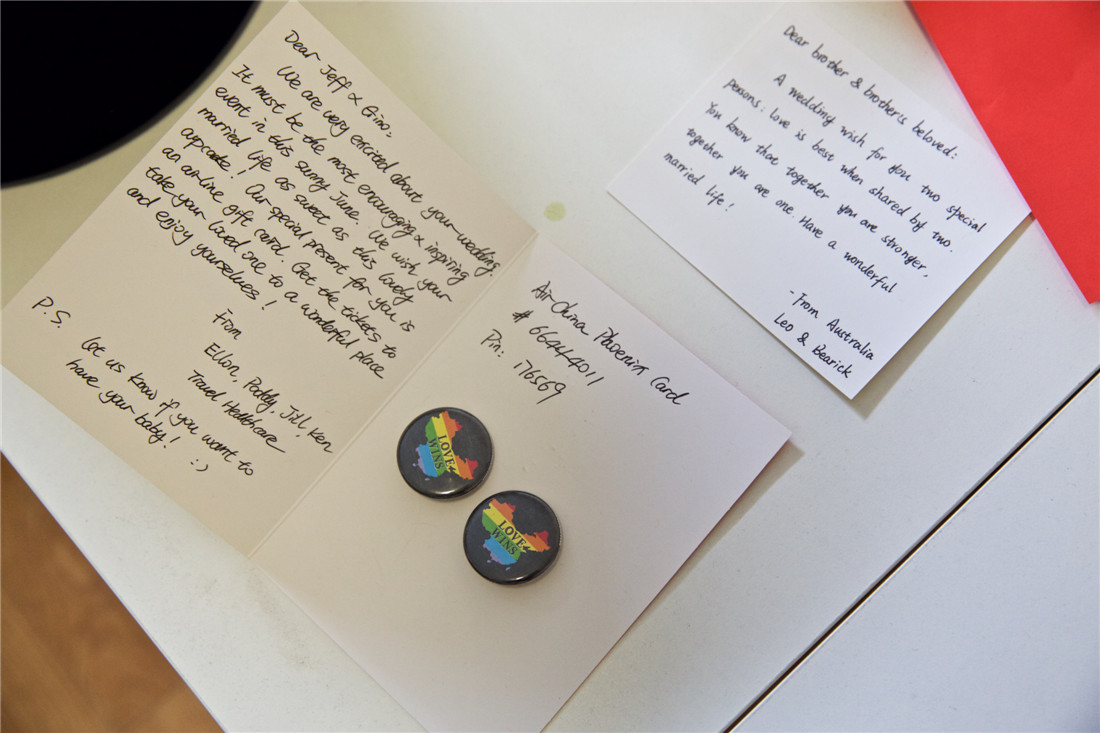 Dear Jeff & Gino.
We are very excited about your wedding.
It must be the most encouraging & inspiring
event in this sunny June. We wish your
married life as sweet as this lovely
cupcake! Our special present for you is
an airline gift card. Get the tickets to
take your loved one to a wonderful place
and enjoy yourselves!
From
Ellon, Poddy, Jill, Ken
Travel Healthcare
P.S.
Let us know if you want to
have your baby! :)
Air China Phoenix Card
# 66444011
Pin: 176569
LOVE
WINS
LOVE
WINS
Dear brother & brother's beloved:
A wedding wish for you two special
persons: Love is best when shared by two.
You know that together you are stronger,
together you are one. Have a wonderful
married life!
-From Australia
Leo & Bearick